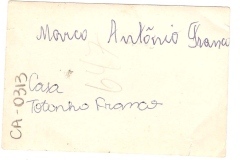 Marco Antônio Franco
Casa
Totonho Franco
CA-0313